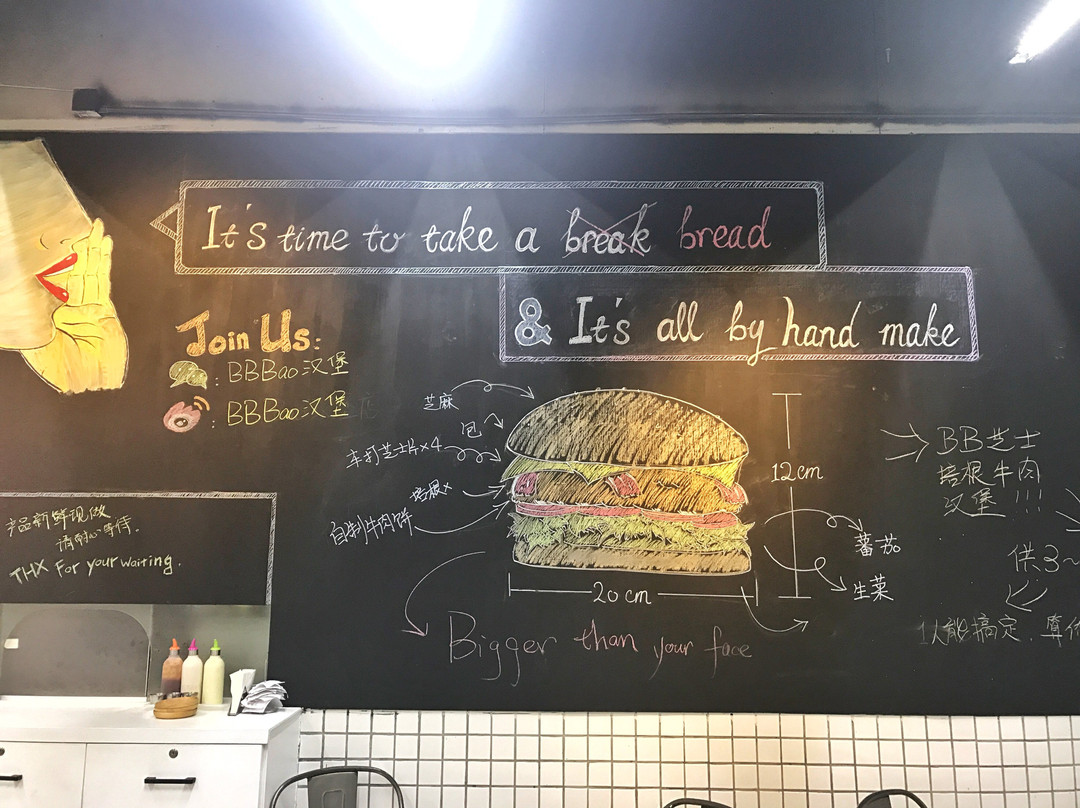 It's time to take a break bread
& It's all by hand make
Join Us:
: BBBao汉堡
: BBBao汉堡店
芝麻
包
车打芝士片x4
培根x
自制牛肉饼
12cm
20cm
蕃茄
生菜
BB芝士
培根牛肉
汉堡!!!
供3~
1人能搞定.算你
Bigger than your face
产品新鲜现做
请耐心等待.
THX For your waiting.